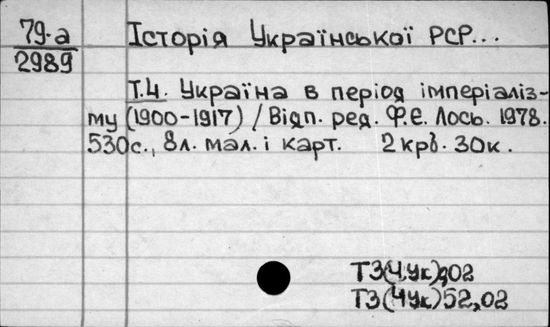 79-а
2989
Історія Української РСР...
Т.4. Україна в період імперіаліз-
му (1900-1917) / Відп. ред. Ф.Е. Лось. 1978.
530с., 8л. мал. і карт. 2 крб. 30к.
Т3(4Ук),02
Т3(4Ук)52,02